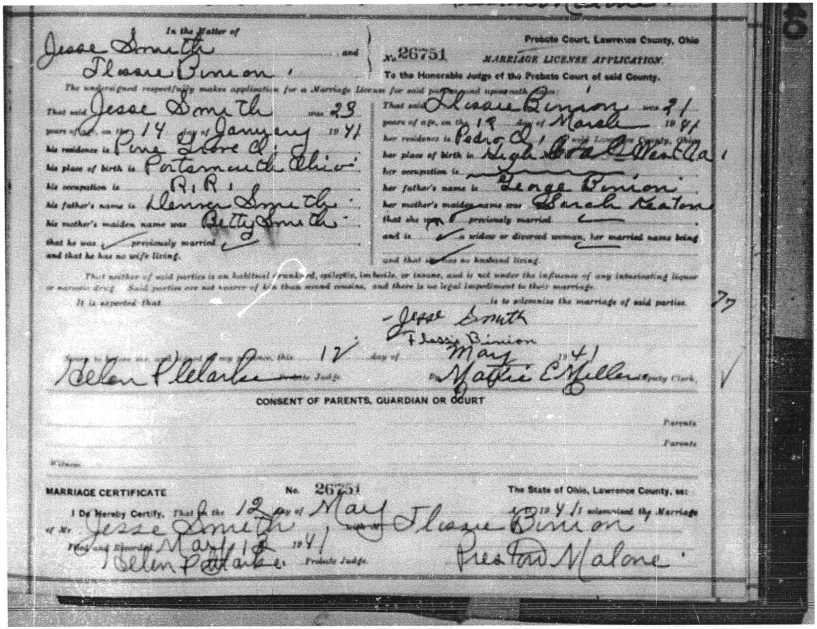 In the Matter of
Jesse Smith
and
Flossie Binion
Probate Court, Lawrence County, Ohio
No. 26751 MARRIAGE LICENSE APPLICATION.
To the Honorable Judge of the Probate Court of said County.
The undersigned respectfully makes application for a Marriage License for said parties and upon oath says:
That said Jesse Smith was 23
years of age, on the 14 day of January 1941
his residence is Pine Grove O.
his place of birth is Portsmouth Ohio
his occupation is R.R.
his father's name is Denver Smith
his mother's maiden name was Betty Smith
that he was previously married
and that he has no wife living.
That said Flossie Binion was 21
years of age, on the 19 day of March 1941
her residence is Pedro O. Lawrence County, Ohio
her place of birth is High Coal West Va.
her occupation is
her father's name is George Binion
her mother's maiden name was Sarah Keaton
that she was previously married
and is a widow or divorced woman, her married name being
and that she has no husband living.
That neither of said parties is an habitual drunkard, epileptic, imbecile, or insane, and is not under the influence of any intoxicating liquor
or narcotic drug. Said parties are not nearer of kin than second cousins, and there is no legal impediment to their marriage.
It is expected that is to solemnize the marriage of said parties.
77
Jesse Smith
Flossie Binion
Sworn to before me, and signed in my presence, this 12 day of May 1941
Helen P. Clarke Probate Judge. By Mattie E Miller Deputy Clerk.
CONSENT OF PARENTS, GUARDIAN OR COURT
Parents
Parents
Witness
MARRIAGE CERTIFICATE No. 26751 The State of Ohio, Lawrence County, ss:
I Do Hereby Certify, That on the 12 day of May 1941 I solemnized the Marriage
of Mr. Jesse Smith with M Flossie Binion
Filed and Recorded May 12 1941
Helen P. Clarke Probate Judge. Preston Malone